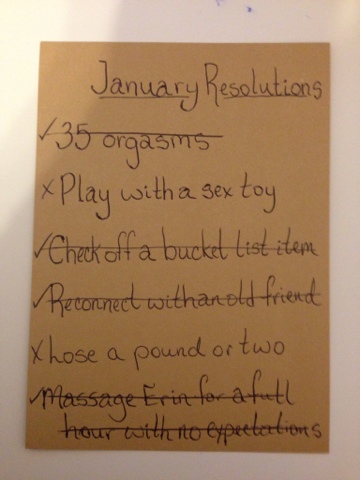 January Resolutions
✓35 orgasms
xPlay with a sex toy
✓Check off a bucket list item
✓Reconnect with an old friend
xLose a pound or two
✓Massage Erin for a full
hour with no expectations